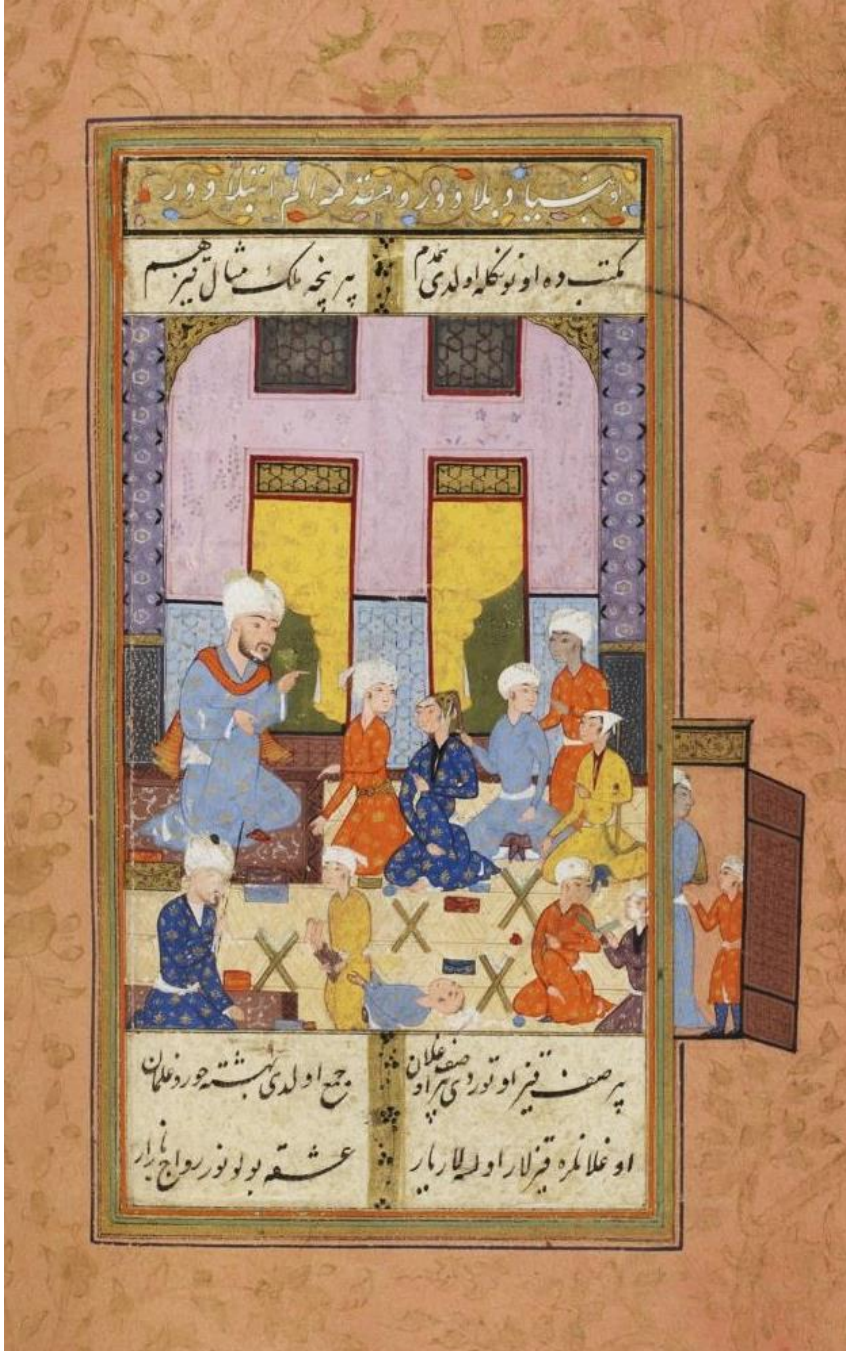 بو بنیاد بلادور و مقدمه الم ابتلادور
مکتب ده اونونکله اولدی همدم بیر نیچه ملک مثال قیز هم
بیر صف قیز اوتوردی بیر صف اوغلان جمع اولدی بهشته حور و غلمان
اوغلانلره قیزلار اولسه لار یار عشقه بولونور رواج بازار